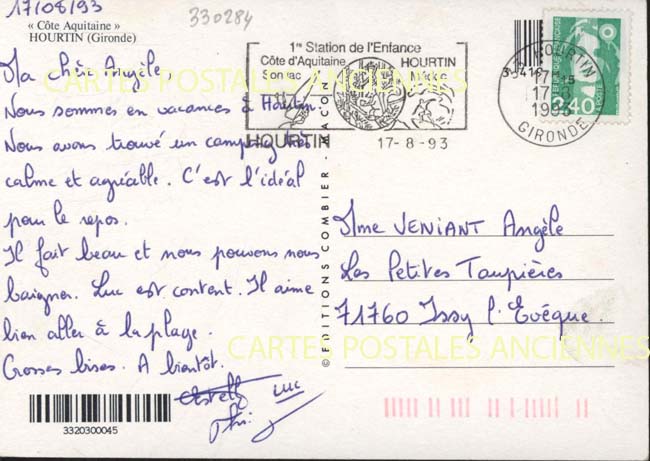 17/08/93
330284
« Côte Aquitaine »
HOURTIN (Gironde)
1re Station de l'Enfance
Côte d'Aquitaine HOURTIN
Son lac
HOURTIN
17-8-93
HOURTIN
17-8
1993
GIRONDE
2,40
Ma chère Angèle,
Nous sommes en vacances à Hourtin.
Nous avons trouvé un camping très
calme et agréable. C'est l'idéal
pour le repos.
Il fait beau et nous pouvons nous
baigner. Luc est content. Il aime
bien aller à la plage.
Grosses bises. A bientôt.
Luc
© EDITIONS COMBIER - MACON
Mme VENIANT Angèle
Les Petites Taupières
71760 Issy l'Evêque.
3320300045
CARTES POSTALES ANCIENNES
CARTES POSTALES ANCIENNES